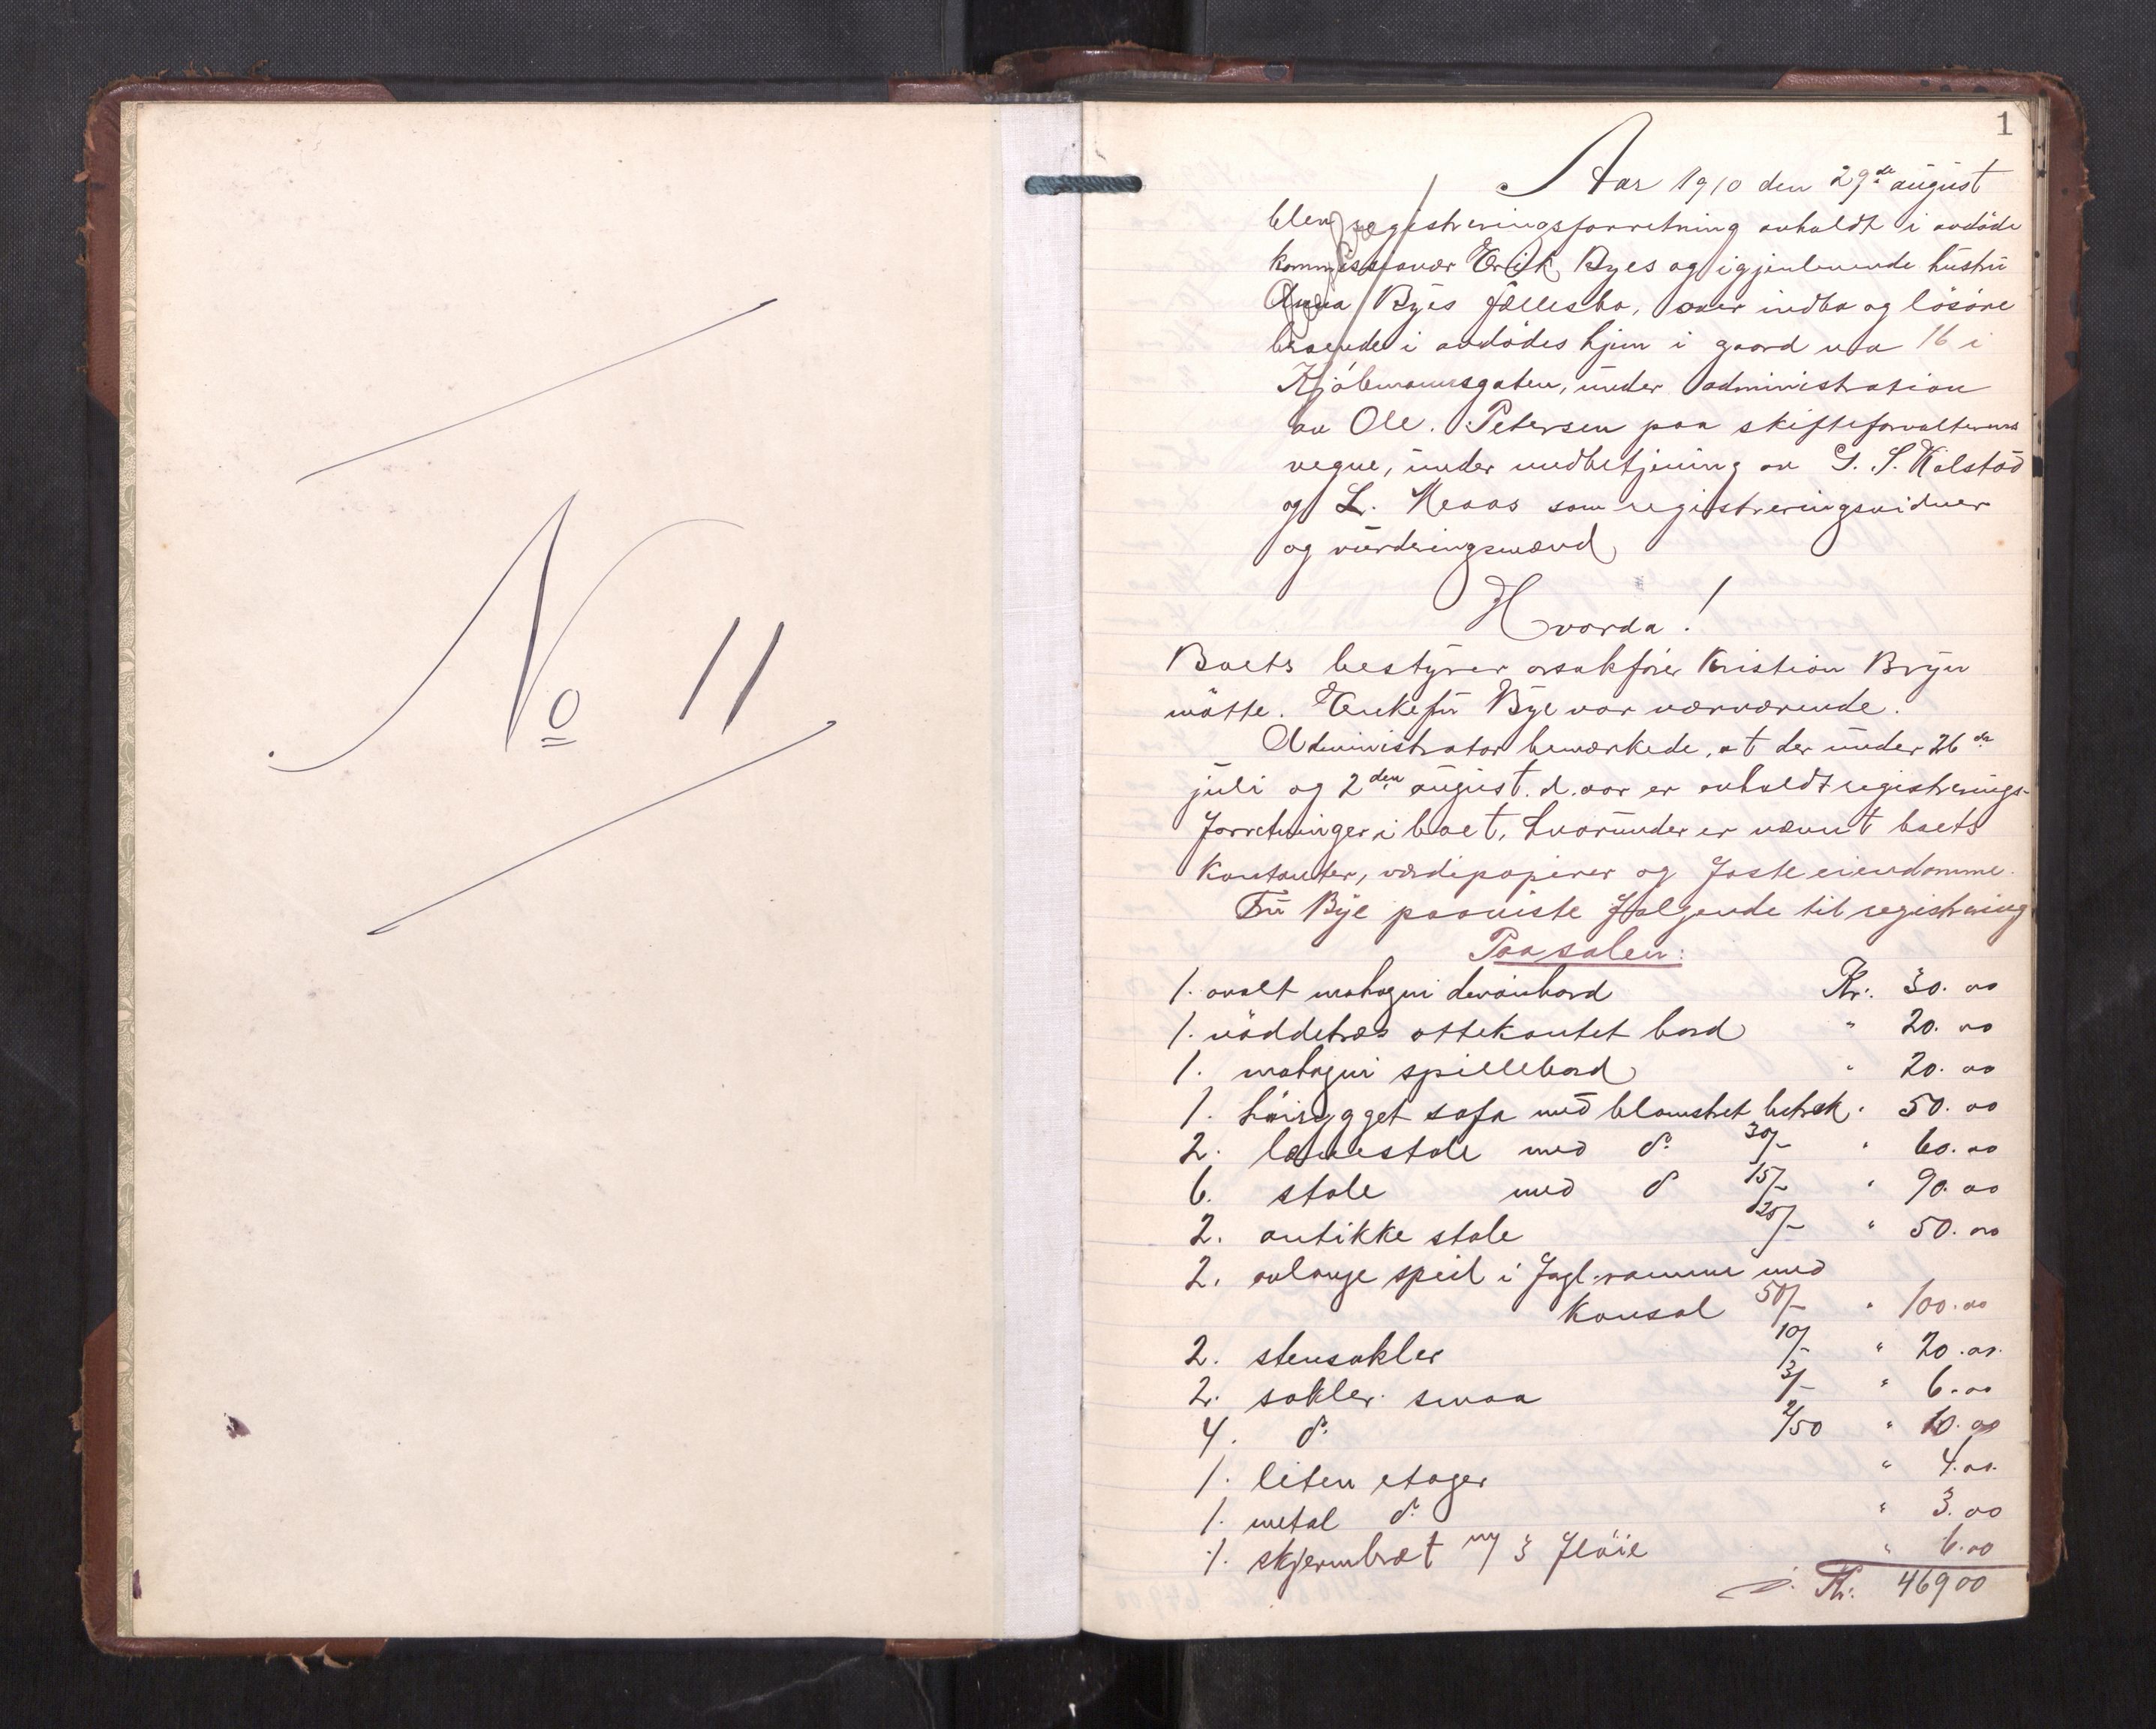 No 11
1
Aar 1910 den 29de august
blev registreringsforretning avholdt i avdöde
kommissionær Erik Byes og igjenlevende hustru
Anna Byes fællesbo, over indbo og lösöre
beroende i avdödes hjem i gaard no 16 i
Kjöbmannsgaten, under administration
av Ole. Petersen paa skifteforvalterens
vegne, under medbetjening av S. S. Kolstad
og L. Meaas som registreringsvidner
og vurderingsmænd,
Hvorda!
Boets bestyrer orsakförer Kristian Bryn
mötte. Enkefru Bye var nærværende.
Administrator bemerkede, at der under 26de
juli og 2den august. d. aar er avholdt registrerings-
forretninger i boet, hvorunder er nævnt boets
kontanter, værdipapirer og faste eiendomme.
Fru Bye paaviste følgende til registrering
Paa salen:
1. ovalt mahogni divanbord Kr. 30. 00
1. nöddetræs ottekantet bord " 20. 00
1. mahogni spillebord " 20. 00
1. höirygget sofa med blomstret betræk " 50. 00
2. lænestole med do 30/- " 60. 00
6. stole med do 15/- " 90. 00
2. antikke stole 25/- " 50. 00
2. avlange speil i forgl. ramme med
konsol 50/- " 100. 00
2. stensokler 10/- " 20. 00
2. sokler smaa 3/- " 6. 00
4. do 2/50 " 10. 00
1. liten etager " 4. 00
1. metal do " 3. 00
1. skjermbræt m/ 3 flöie " 6. 00
Kr. 469 00